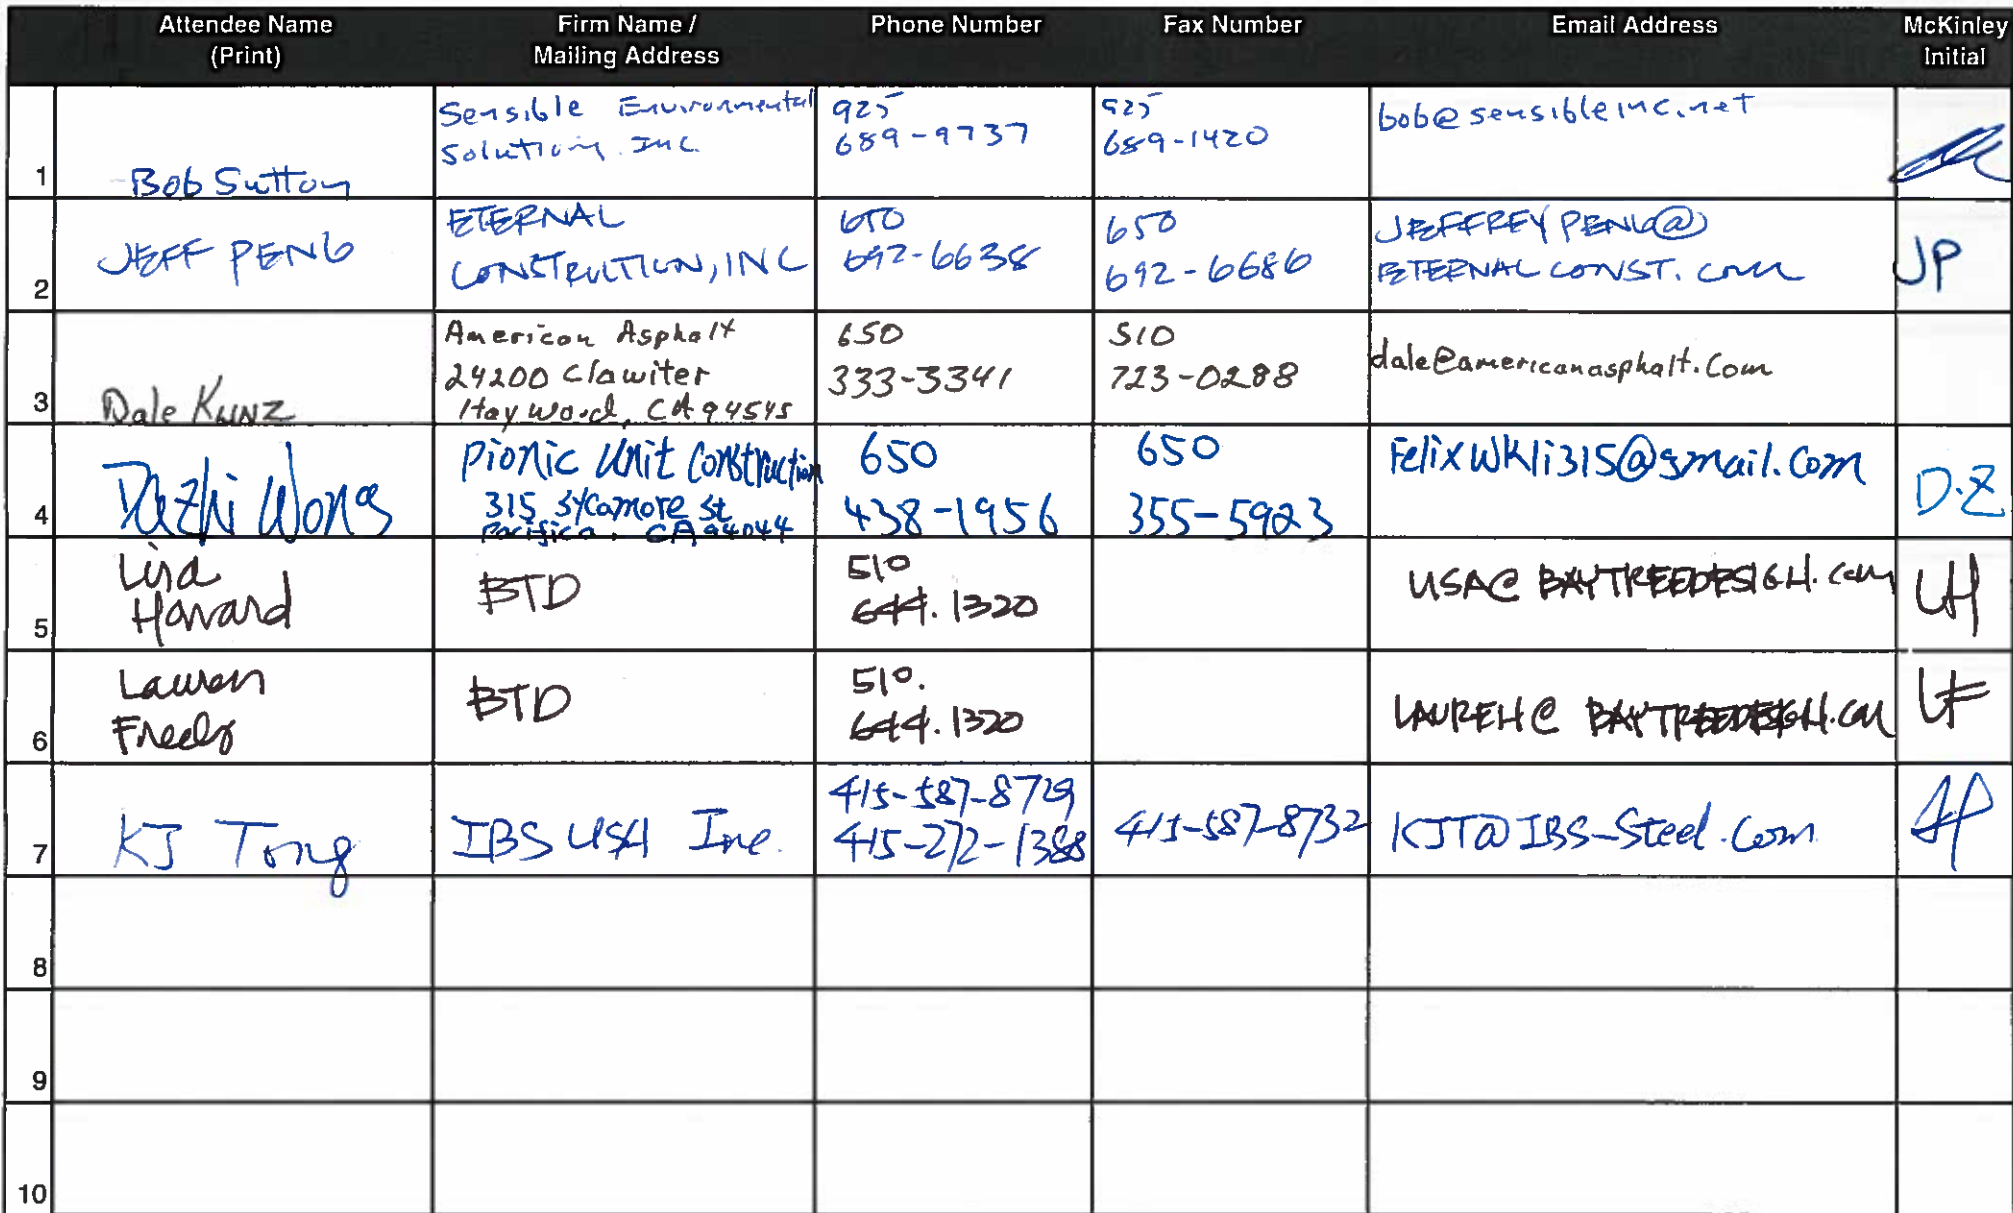 Attendee Name
(Print)
Firm Name /
Mailing Address
Phone Number
Fax Number
Email Address
McKinley
Initial
1
Bob Sutton
Sensible Environmental
Solutions. Inc
925
689-9737
925
689-1420
bob@sensibleinc.net
2
JEFF PENG
ETERNAL
CONSTRUCTION, INC
650
692-6638
650
692-6686
JEFFREYPENG@
ETERNALCONST.com
JP
3
Dale KUNZ
American Asphalt
24200 Clawiter
Hayward, CA 94545
650
333-3341
510
723-0288
dale@americanasphalt.Com
4
Dazhi Wong
Pionic Unit Construction
315 Sycamore St
Pacifica, CA 94044
650
438-1956
650
355-5923
FelixWKli315@gmail.Com
D.Z
5
Lisa
Howard
BTD
510
644.1320
LISA@ BAYTREEDESIGN.com
LH
6
Lauren
BTD
510.
644.1320
LAUREN@ BAYTREEDESIGN.com
LF
7
KJ Tong
IBS USA Inc.
415-587-8729
415-272-1388
415-587-8732
KJT@IBS-Steel.Com
8
9
10